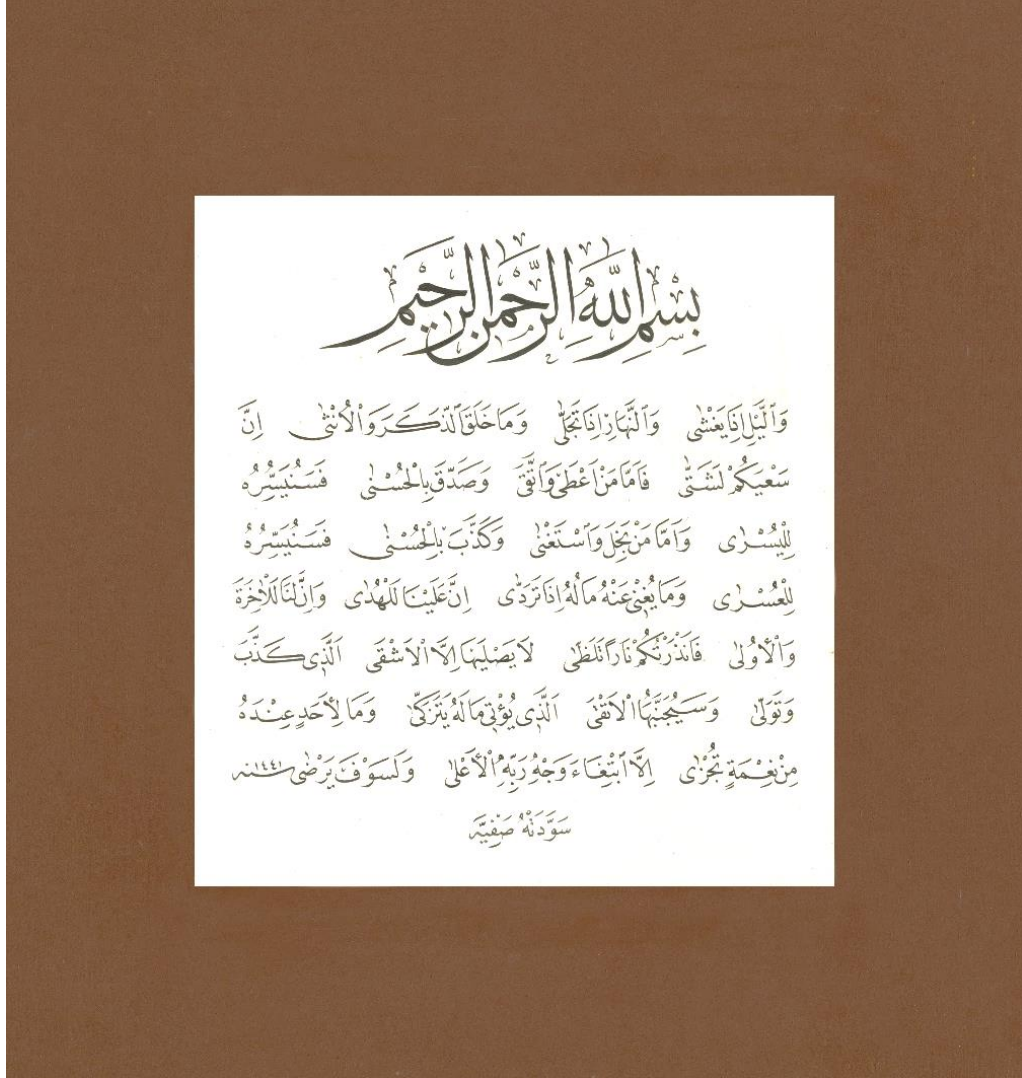 بِسْمِ اللَّهِ الرَّحْمٰنِ الرَّحِيمِ
وَٱلَّيْلِ اِذَا يَغْشٰى وَٱلنَّهَارِ اِذَا تَجَلّٰى وَمَا خَلَقَ ٱلذَّكَرَ وَٱلْاُنْثٰى اِنَّ
سَعْيَكُمْ لَشَتّٰى فَاَمَّا مَنْ اَعْطٰى وَٱتَّقٰى وَصَدَّقَ بِالْحُسْنٰى فَسَنُيَسِّرُهُ
لِلْيُسْرٰى وَاَمَّا مَنْ بَخِلَ وَٱسْتَغْنٰى وَكَذَّبَ بِالْحُسْنٰى فَسَنُيَسِّرُهُ
لِلْعُسْرٰى وَمَا يُغْنِى عَنْهُ مَالُهُ اِذَا تَرَدّٰى اِنَّ عَلَيْنَا لَلْهُدٰى وَاِنَّ لَنَا لَلْاٰخِرَةَ
وَالْاُولٰى فَاَنْذَرْتُكُمْ نَارًا تَلَظّٰى لَا يَصْلٰيهَا اِلَّا الْاَشْقَى اَلَّذِى كَذَّبَ
وَتَوَلّٰى وَسَيُجَنَّبُهَا الْاَتْقٰى اَلَّذِى يُؤْتِى مَالَهُ يَتَزَكّٰى وَمَا لِاَحَدٍ عِنْدَهُ
مِنْ نِعْمَةٍ تُجْزٰى اِلَّا ٱبْتِغَاءَ وَجْهِ رَبِّهِ الْاَعْلٰى وَلَسَوْفَ يَرْضٰى سنه ١٤٤١
سَوَّدَتْهُ صَفِيَّه